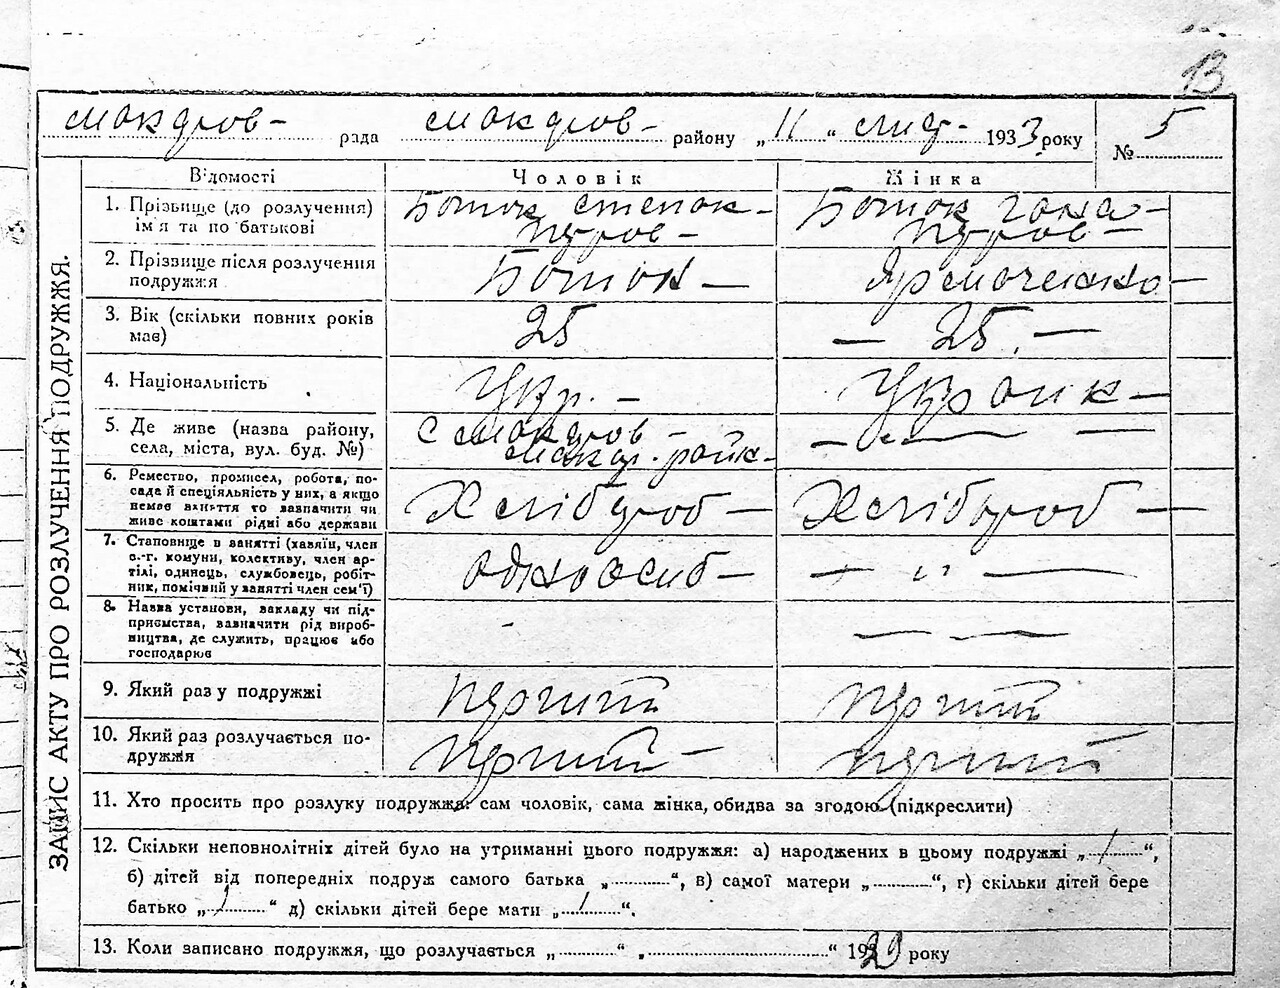 13
Макаров- рада Макаров- району „11“ лип- 1933 року
№ 5
ЗАПИС АКТУ ПРО РОЗЛУЧЕННЯ ПОДРУЖЖЯ.
Відомості Чоловік Жінка
1. Прізвище (до розлучення) ім'я та по батькові
Ботюк Степан-
Петров-
Ботюк Ганна-
Петров-
2. Прізвище після розлучення подружжя
Ботюк-
Яремаченко-
3. Вік (скільки повних років має)
25
- 25. -
4. Національність
Укр. -
Україн-
5. Де живе (назва району, села, міста, вул. буд. №)
с Макаров-
Макар. район-
6. Ремество, промисел, робота, посада й спеціяльність у них, а якщо немає заняття то зазначити чи живе коштами рідні або держави
Хлібороб-
Хлібороб-
7. Становище в занятті (хазяїн, член с.-г. комуни, колективу, член артілі, одинець, службовець, робітник, помічний у занятті член сем'ї)
одноосиб-
- " -
8. Назва установи, закладу чи підприємства, зазначити рід виробництва, де служить, працює або господарює
-
- -
9. Який раз у подружжі
перший
перший
10. Який раз розлучається подружжя
перший-
перший
11. Хто просить про розлуку подружжя: сам чоловік, сама жінка, обидва за згодою (підкреслити)
12. Скільки неповнолітніх дітей було на утриманні цього подружжя: а) народжених в цьому подружжі „1“,
б) дітей від попередніх подруж самого батька „......“, в) самої матери „......“, г) скільки дітей бере
батько „/“ д) скільки дітей бере мати „1“.
13. Коли записано подружжя, що розлучається „......“ „......“ 1929 року